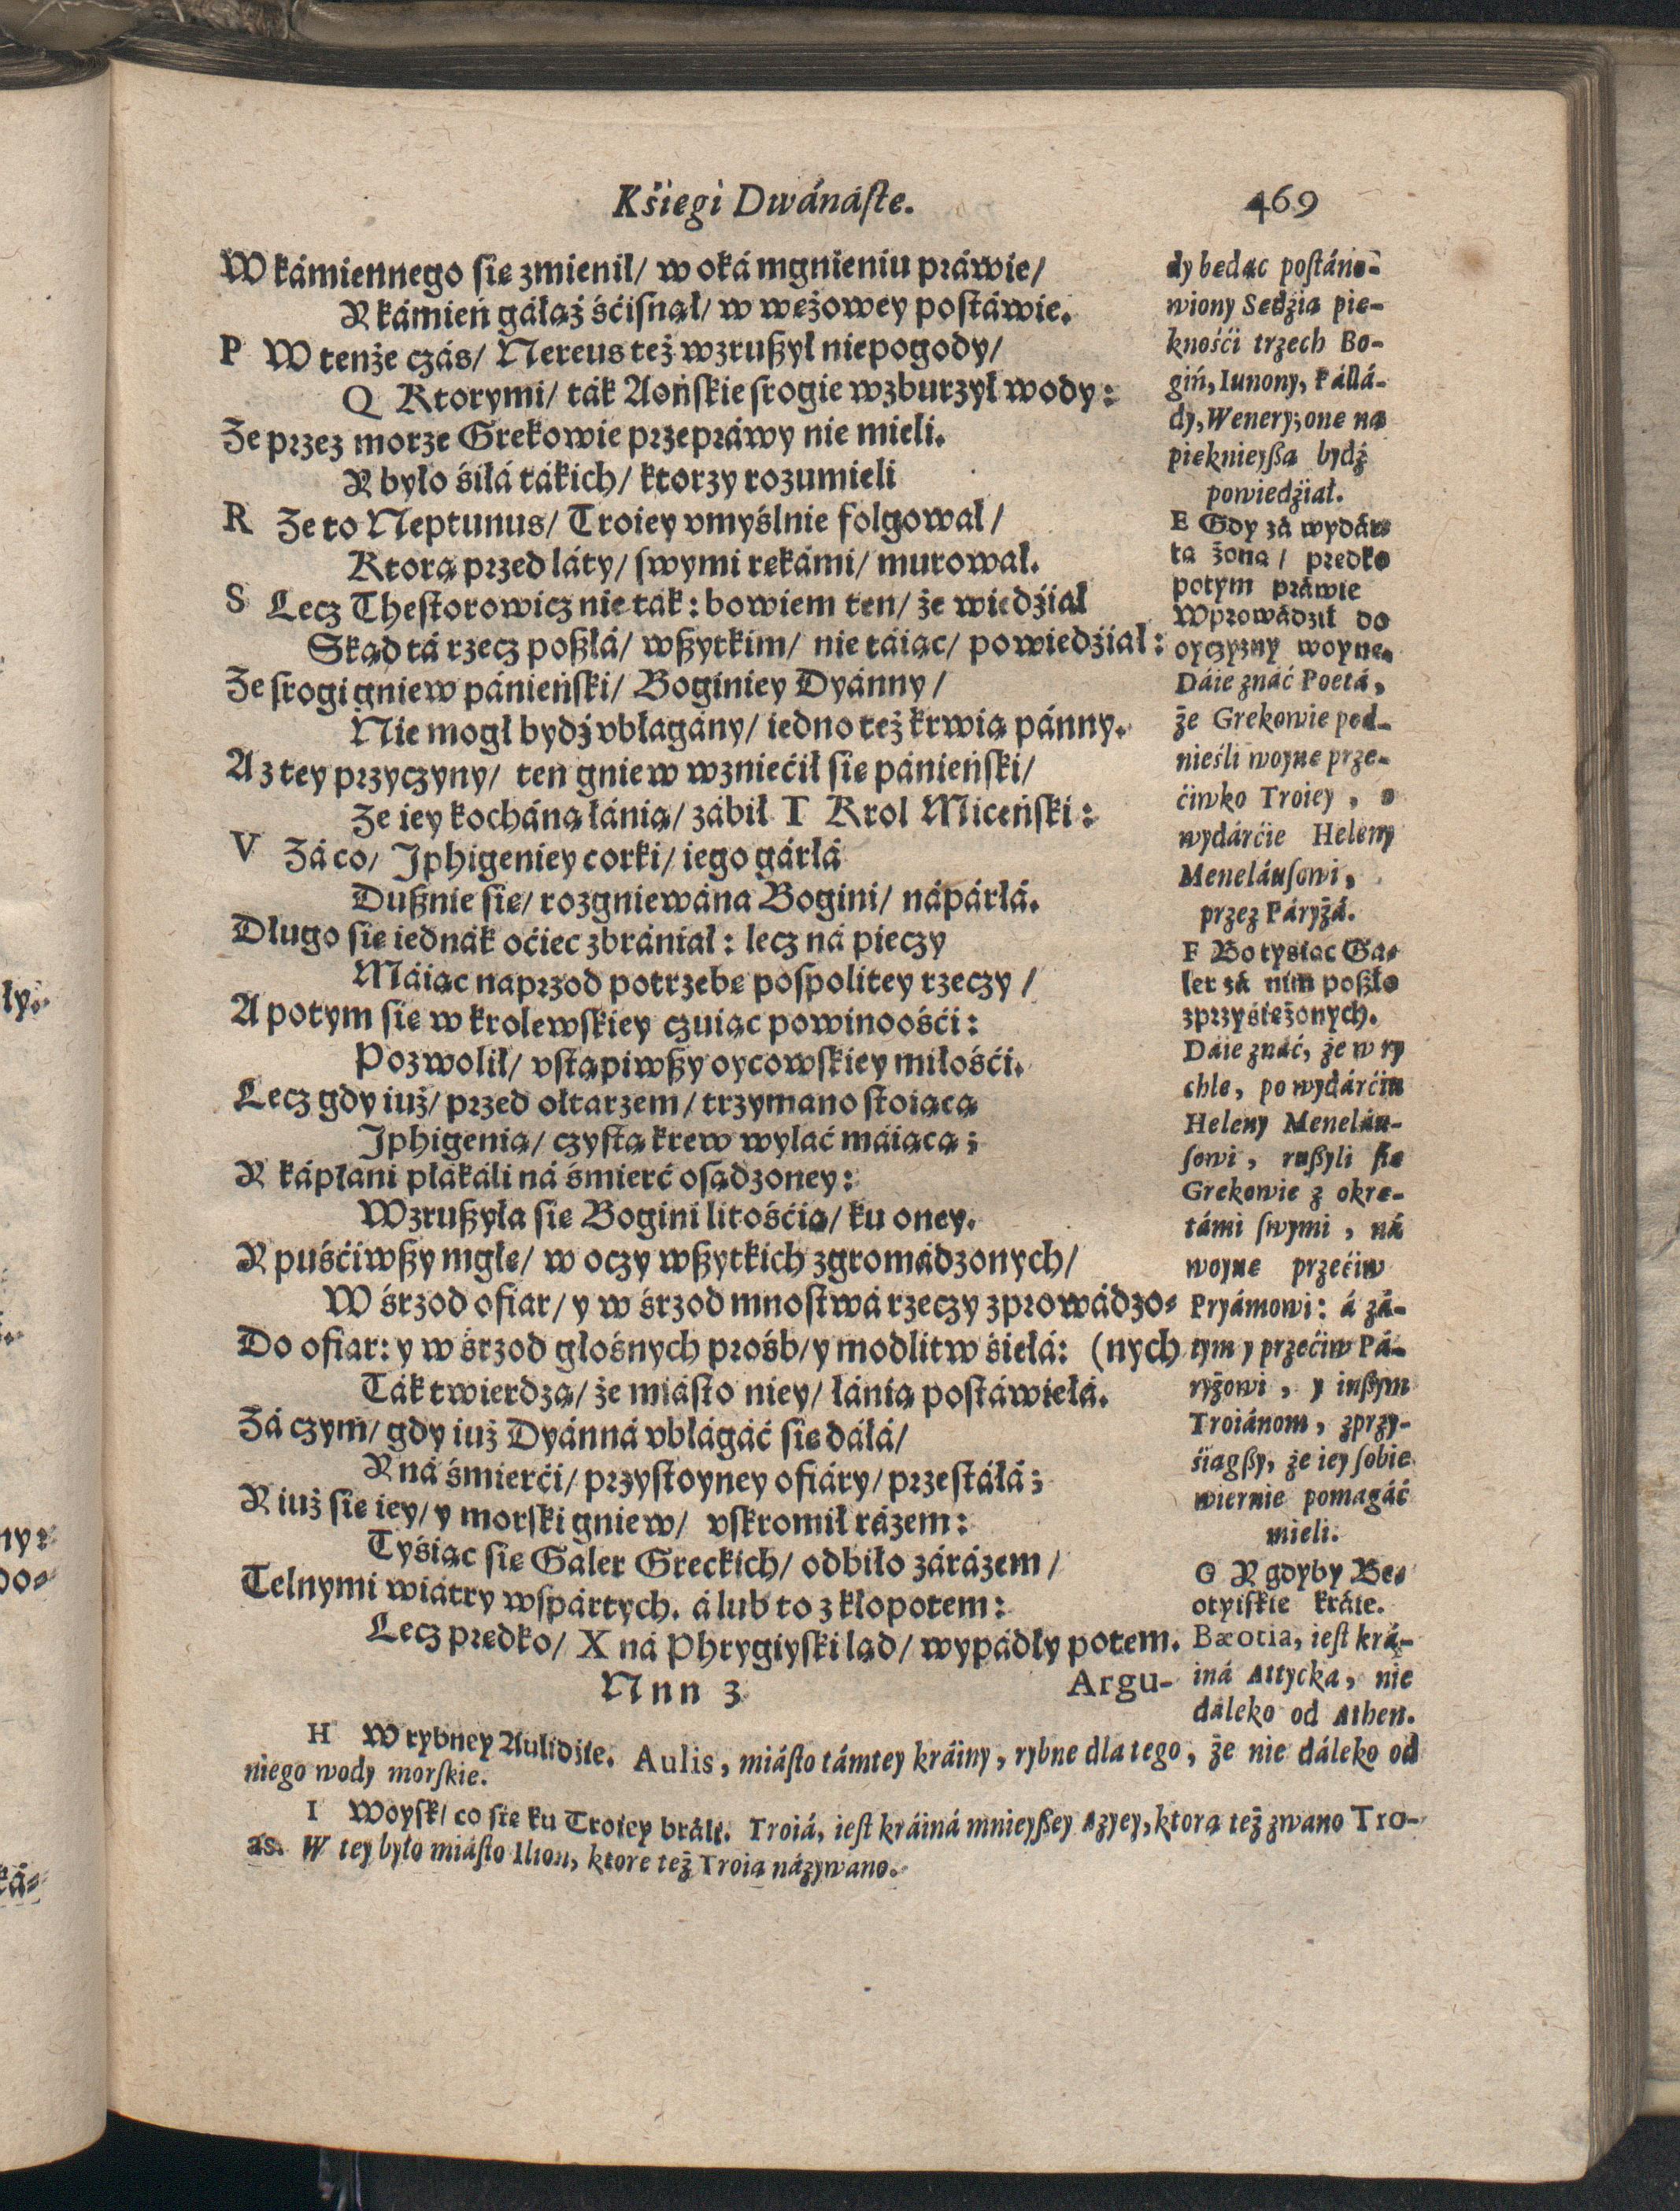 Kśiegi Dwánaſte. 469
W kámiennego ſie zmienił/ w oká mgnieniu práwie/
Y kámień gáłąź śćiſnął/ w wężowey poſtáwie.
P W tenże czás/ Nereus też wzrußył niepogody/
Q Ktorymi/ ták Aońſkie ſrogie wzburzył wody:
Że przez morze Grekowie przepráwy nie mieli.
Y było śiłá tákich/ ktorzy rozumieli
R Że to Neptunus/ Troiey vmyślnie folgował/
Ktorą przed láty/ ſwymi rękámi/ murował.
S Lecz Theſtorowicz nie ták: bowiem ten/ że wiedźiał
Skąd tá rzecz poßłá/ wßytkim/ nie táiąc/ powiedźiał:
Że ſrogi gniew pánieńſki/ Boginiey Dyánny/
Nie mogł bydź vbłagány/ iedno też krwią pánny.
A z tey przyczyny/ ten gniew wzniećił ſie pánieńſki/
Że iey kocháną łánią/ zábił T Krol Miceńſki:
V Zá co/ Jphigeniey corki/ iego gárłá
Dußnie ſie/ rozgniewána Bogini/ nápárłá.
Długo ſie iednák oćiec zbrániał: lecz ná pieczy
Máiąc naprzod potrzebę poſpolitey rzeczy/
A potym ſie w krolewſkiey czuiąc powinoośći:
Pozwolił/ vſtąpiwßy oycowſkiey miłośći.
Lecz gdy iuż/ przed ołtarzem/ trzymano ſtoiącą
Jphigenią/ czyſtą krew wylać máiącą;
Y kápłani płákáli ná śmierć oſądzoney:
Wzrußyła ſie Bogini litośćią/ ku oney.
Y puśćiwßy mgłę/ w oczy wßytkich zgromádzonych/
W śrzod ofiar/ y w śrzod mnoſtwá rzeczy zprowádzo-
Do ofiar: y w śrzod głośnych prośb/ y modlitw śiełá: (nych
Ták twierdzą/ że miáſto niey/ łánią poſtáwiełá.
Zá czym/ gdy iuż Dyánná vbłágáć ſie dáłá/
Y ná śmierći/ przyſtoyney ofiáry/ przeſtáłá;
Y iuż ſie iey/ y morſki gniew/ vſkromił rázem:
Tyśiąc ſie Galer Greckich/ odbiło zárázem/
Telnymi wiátry wſpártych. á lub to z kłopotem:
Lecz prędko/ X ná Phrygiyſki ląd/ wypádły potem.
Nnn 3 Argu-
dy będąc poſtáno-
wiony Sędźią pię-
knośći trzech Bo-
giń, Iunony, Pállá-
dy, Wenery; onę na
pięknieyßą bydź
powiedźiał.
E Gdy zá wydár-
tą żoną/ prędko
potym práwie
Wprowádził do
oyczyzny woynę.
Dáie znáć Poetá,
że Grekowie pod-
nieśli woynę prze-
ćiwko Troiey, o
wydárćie Heleny
Meneláuſowi,
przez Páryżá.
F Bo tyśiąc Ga-
ler zá nim poßło
zprzyśiężonych.
Dáie znáć, że w ry
chle, po wydárćiu
Heleny Meneláu-
ſowi, rußyli ſie
Grekowie z okrę-
támi ſwymi, ná
woynę przećiw
Pryámowi: á zá-
tym y przećiw Pá-
ryżowi, y inßym
Troiánom, zprzy-
śiągßy, że iey ſobie
wiernie pomagáć
mieli.
G Y gdyby Be-
otyiſkie kráie.
Bæotia, ieſt krá-
iná Attycka, nie
daleko od Athen.
H W rybney Aulidźie. Aulis, miáſto támtey kráiny, rybne dla tego, że nie dáleko od
niego wody morſkie.
I Woyſk/ co ſie ku Troiey bráły. Troiá, ieſt kráiná mnieyßey Azyey, ktorą też zwano Tro-
as. W tey było miáſto Ilion, ktore też Troią názywano.